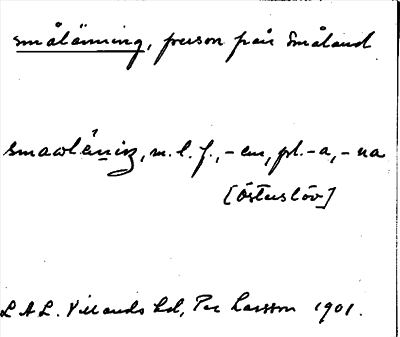 smålänning, person från Småland
smawlèniŋ, m. l. f., -en, pl. -a, -na
[Österslöv]
L.A.L. Villands hd, Per Larsson 1901.